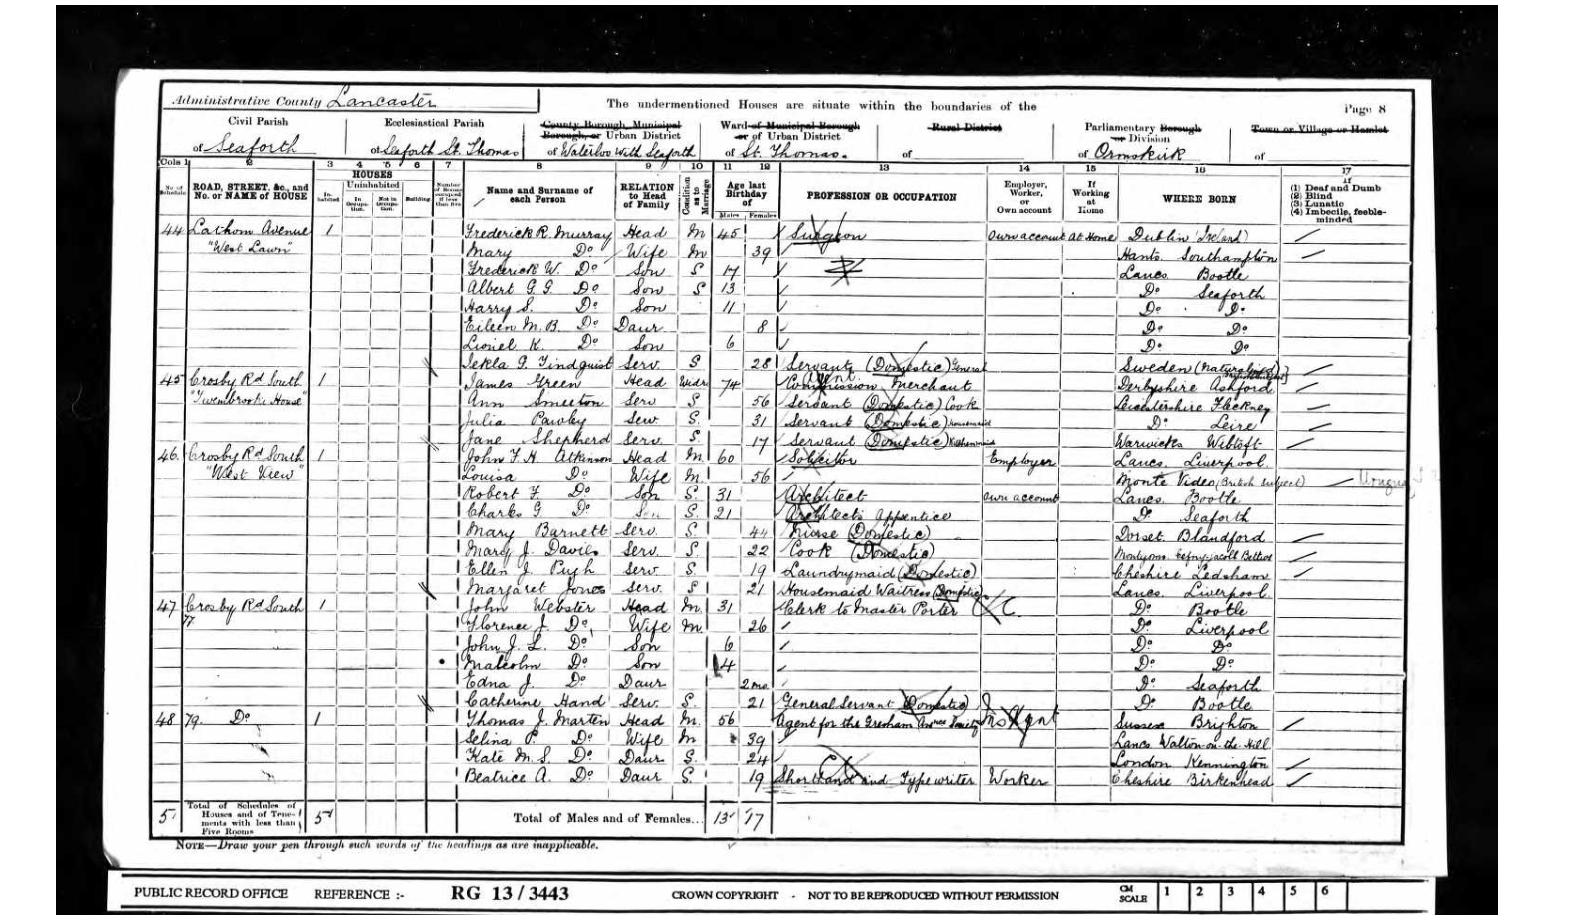 Administrative County Lancaster
The undermentioned Houses are situate within the boundaries of the
Page 8
Civil Parish of Seaforth
Ecclesiastical Parish of Seaforth St. Thomas
County Borough, Municipal Borough, or Urban District of Waterloo with Seaforth
Ward of Municipal Borough or of Urban District of St. Thomas.
Rural District of
Parliamentary Borough or Division of Ormskirk
Town or Village or Hamlet of
Cols 1 2 3 4 5 6 7 8 9 10 11 12 13 14 15 16 17
No. of Schedule
ROAD, STREET, &c., and No. or NAME of HOUSE
HOUSES
Inhabited
Uninhabited
In Occupation.
Not in Occupation.
Building.
Number of Rooms occupied if less than five
Name and Surname of each Person
RELATION to Head of Family
Condition as to Marriage
Age last Birthday of
Males Females
PROFESSION OR OCCUPATION
Employer, Worker, or Own account
If Working at Home
WHERE BORN
If (1) Deaf and Dumb (2) Blind (3) Lunatic (4) Imbecile, feeble-minded
44 Lathom Avenue 1 Frederick R. Murray Head M 45 Surgeon Own account At Home Dublin (Ireland)
"West Lawn" Mary Do Wife M 39 Hants. Southampton
Frederick W. Do Son S 17 Lancs. Bootle
Albert G. G. Do Son S 13 Do Seaforth
Harry S. Do Son 11 Do Do
Eileen M. B. Do Daur 8 Do Do
Lionel K. Do Son 6 Do Do
Tekla G. Lindquist Serv. S 28 Servant (Domestic) General Sweden (Naturalised)
45 Crosby Rd South 1 James Green Head Widr 74 Commission Merchant Derbyshire Ashford
"Twembrook House" Ann Smeeton Serv S 56 Servant (Domestic) Cook Leicestershire Fleckney
Julia Pawley Serv. S. 31 Servant (Domestic) Housemaid Do Leire
Jane Shepherd Serv. S. 17 Servant (Domestic) Kitchenmaid Warwicks Wibtoft
46. Crosby Rd South 1 John F. H. Atkinson Head M. 60 Solicitor Employer Lancs. Liverpool
"West View" Louisa Do Wife M. 56 Monte Video (British subject)
Robert F. Do Son S. 31 Architect Own account Lancs. Bootle
Charles G. Do Son S. 21 Architect's Apprentice Do Seaforth
Mary Barnett Serv. S. 44 Nurse (Domestic) Dorset. Blandford
Mary J. Davies Serv. S 22 Cook (Domestic)
Ellen J. Pugh Serv. S 19 Laundrymaid (Domestic) Cheshire Ledsham
Margaret Jones Serv. S 21 Housemaid Waitress (Domestic) Lancs. Liverpool
47 Crosby Rd South 1 John Webster Head M. 31 Clerk to Master Porter Do Bootle
77 Florence J. Do Wife M. 26 Do Liverpool
John J. L. Do Son 6 Do Do
Malcolm Do Son 4 Do Do
Edna J. Do Daur 2 mo. Do Seaforth
Catherine Hand Serv. S. 21 General Servant (Domestic) Do Bootle
48 79. Do 1 Thomas J. Martin Head M. 56 Agent for the Gresham Society Ins Agnt Sussex Brighton
Selina P. Do Wife M 39 Lancs. Walton-on-the-Hill
Kate M. S. Do Daur S. 24 London Kennington
Beatrice A. Do Daur S. 19 Shorthand and Typewriter Worker Cheshire Birkenhead
5 Total of Schedules of Houses and of Tenements with less than Five Rooms 5 Total of Males and of Females... 13 17
NOTE—Draw your pen through such words of the headings as are inapplicable.
PUBLIC RECORD OFFICE REFERENCE :- RG 13 / 3443 CROWN COPYRIGHT - NOT TO BE REPRODUCED WITHOUT PERMISSION CM SCALE 1 2 3 4 5 6